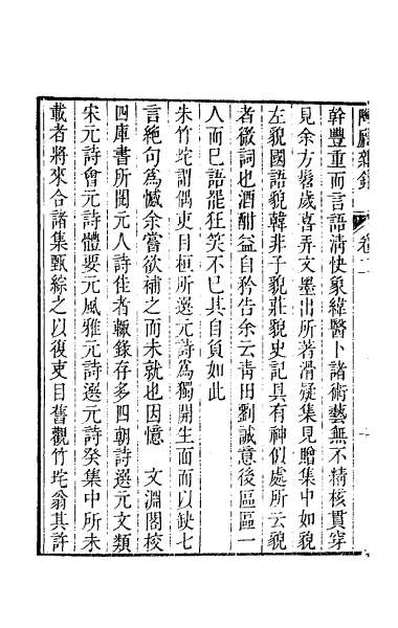 陶廬雜錄 卷二
幹豐重而言語清快象緯醫卜諸術藝無不精核貫穿
見余方髫歲喜弄文墨出所著滑疑集見贈集中如貌
左貌國語貌韓非子貌莊貌史記具有神似處所云貌
者微詞也酒酣益自矜告余云靑田劉誠意後區區一
人而已語罷狂笑不已其自負如此
朱竹垞謂偶吏目桓所選元詩爲獨開生面而以缺七
言絕句爲憾余嘗欲補之而未就也因憶 文淵閣校
四庫書所閱元人詩佳者輒錄存多四朝詩選元文類
宋元詩會元詩體要元風雅元詩選元詩癸集中所未
載者將來合諸集甄綜之以復吏目舊觀竹垞翁其許